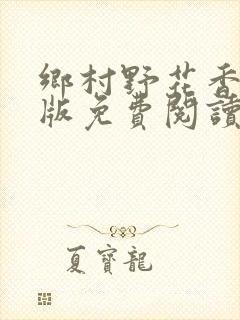 鄉村野花香
版免費閱讀
夏寶龍